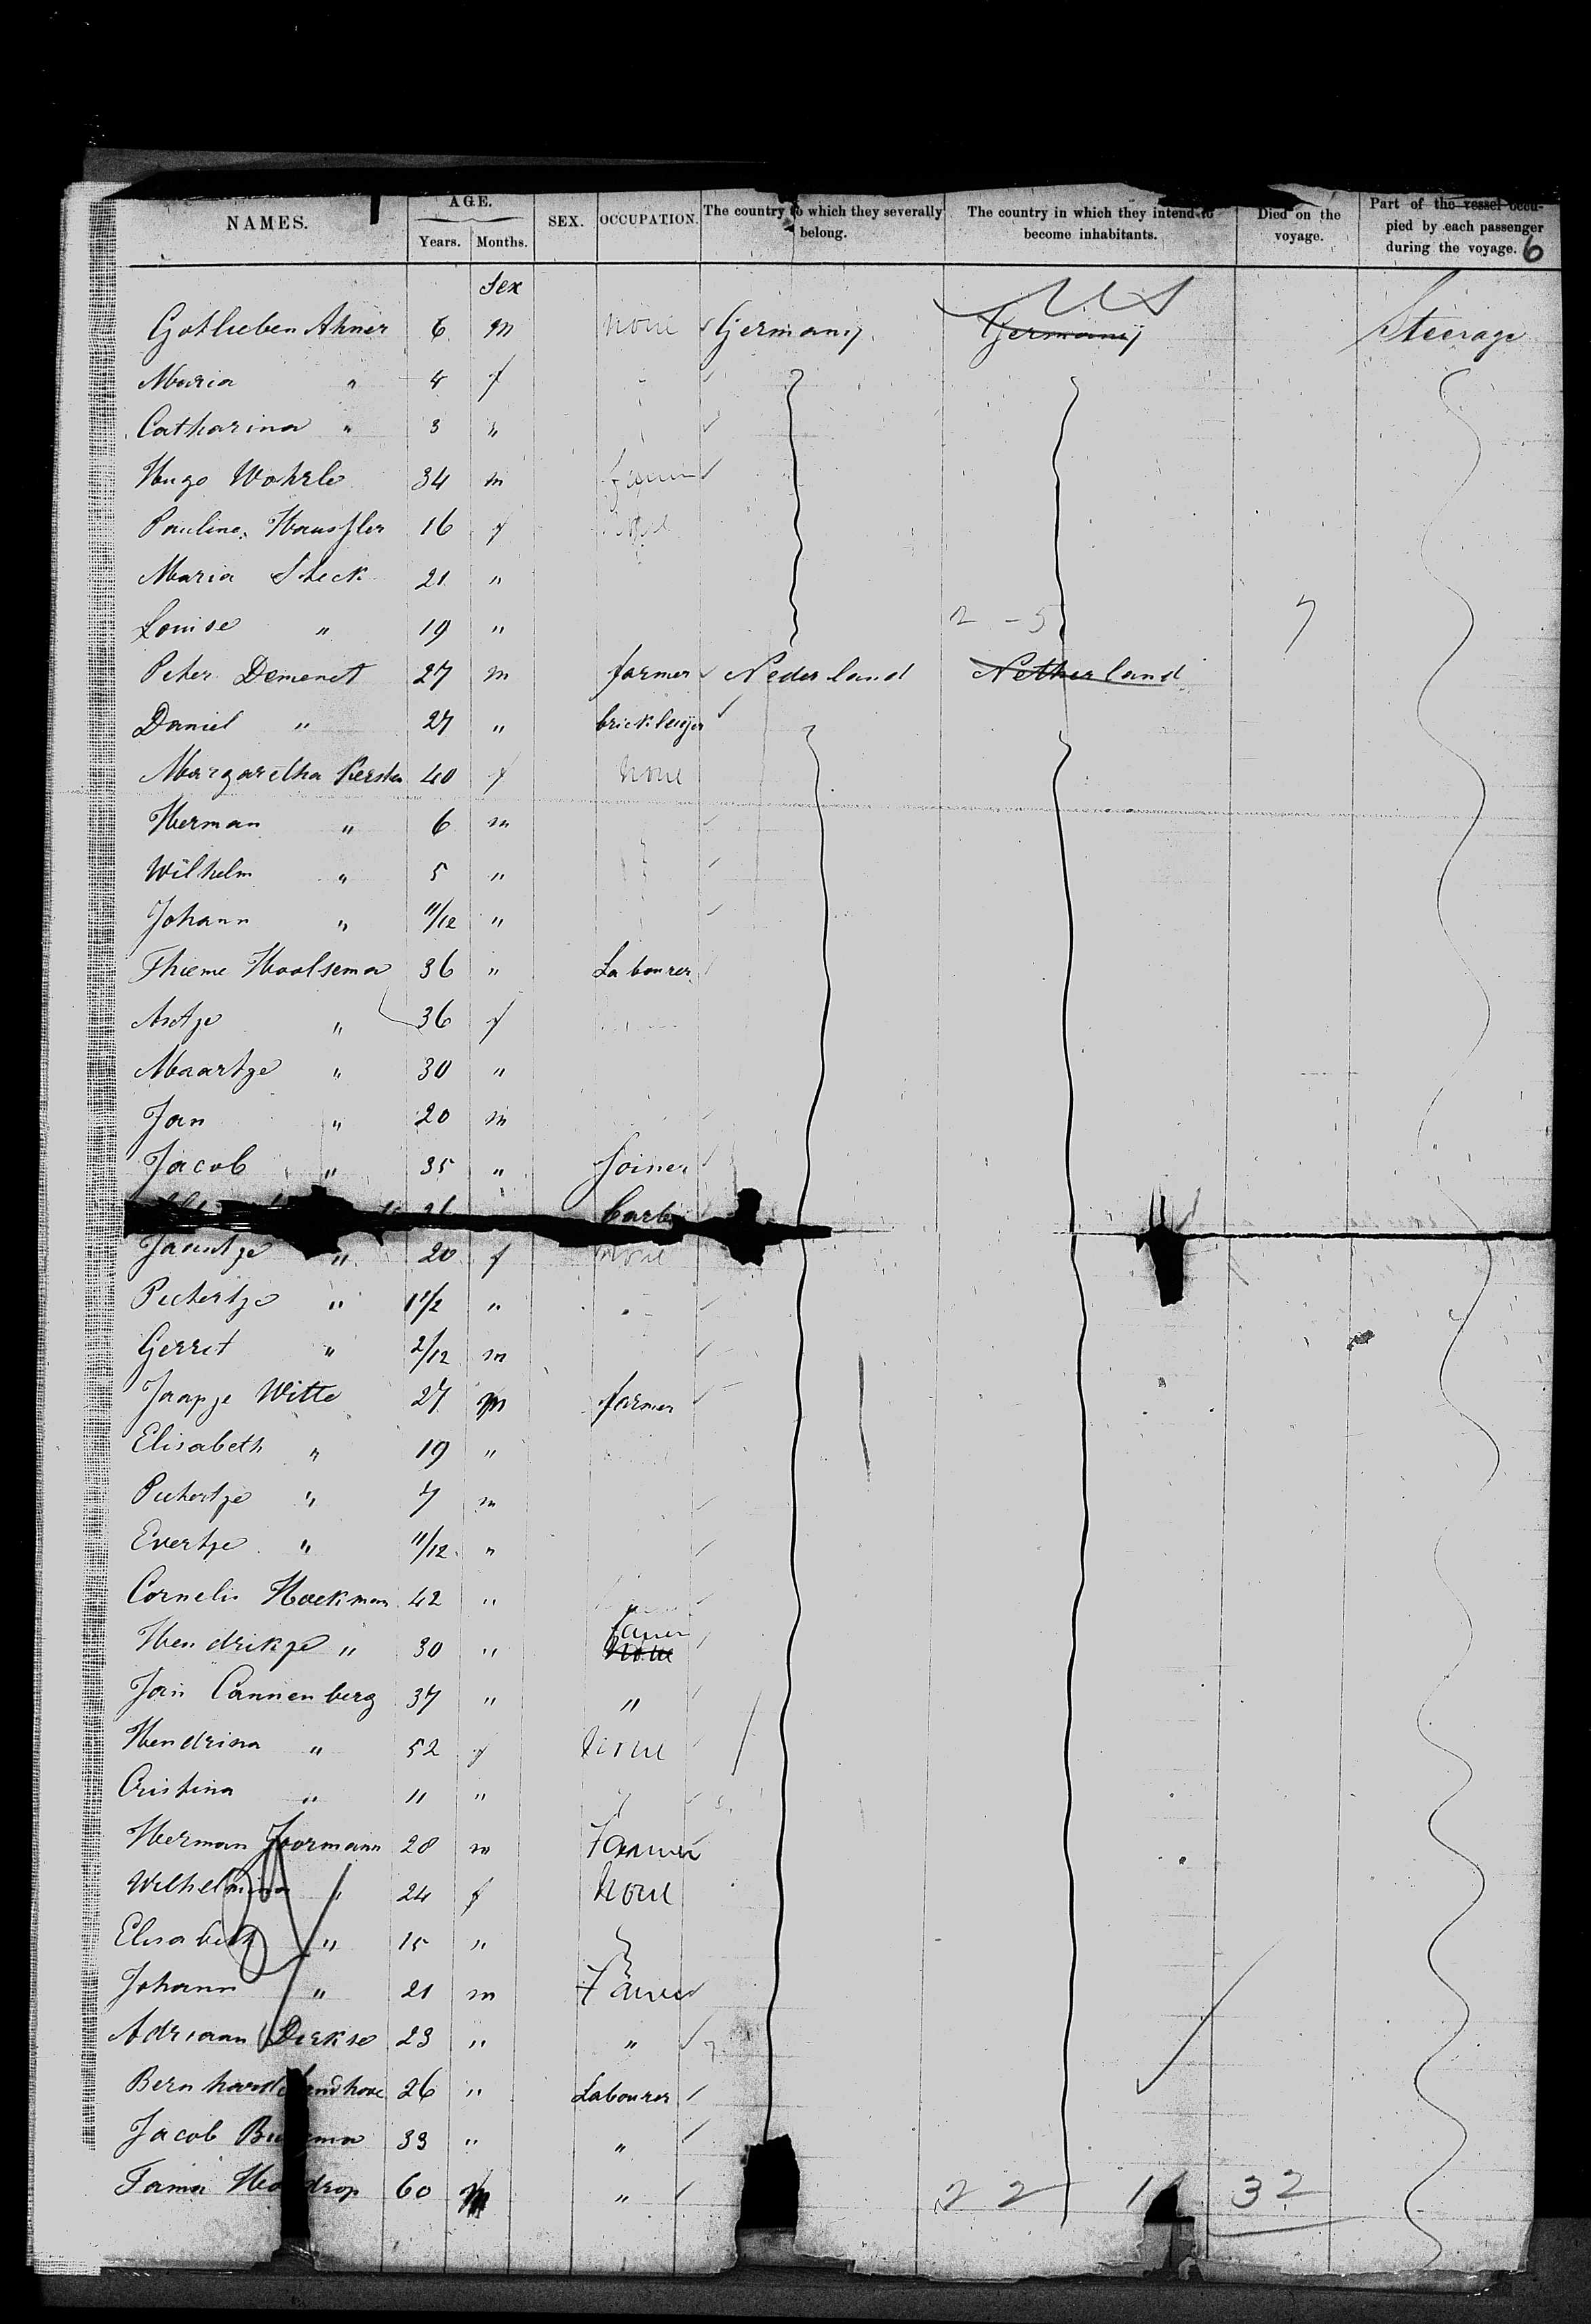 NAMES. AGE. Years. Months. SEX. OCCUPATION. The country to which they severally belong. The country in which they intend to become inhabitants. Died on the voyage. Part of the vessel occupied by each passenger during the voyage. 6
Sex
US
Gotlieben Ahner 6 m none Germany. Germany Steerage
Maria " 4 f
Catharina " 3 "
Hugo Wohrle 34 m farmer
Pauline Haussler 16 f
Maria Steck 21 "
Louise " 19 " 2 - 5 7
Peter Demenet 27 m farmer Nederland Netherland
Daniel " 27 " bricklayer
Margaretha Kersten 40 f none
Herman " 6 m
Wilhelm " 5 "
Johann " 11/12 "
Thieme Hoolsema 36 " Labourer
Antje " 36 f
Maartje " 30 "
Jan " 20 m
Jacob " 35 " Joiner
Jaantje " 20 f none
Pietertje " 1 1/2 "
Gerret " 2/12 m
Jaapje Witte 27 m farmer
Elisabeth " 19 "
Pietertje " 7 m
Evertje " 11/12 "
Cornelis Hoekman 42 "
Hendrikje " 30 " farmer none
Jan Cannenberg 37 " "
Hendrina " 52 f none
Cristina " 11 "
Herman Joormann 28 m Farmer
Wilhelmina " 24 f none
Elisabeth " 15 "
Johann " 21 m Farmer
Adriaan Dirkse 23 " "
Bernhard 26 " Labourer
Jacob 33 " "
60 m " 22 11 32